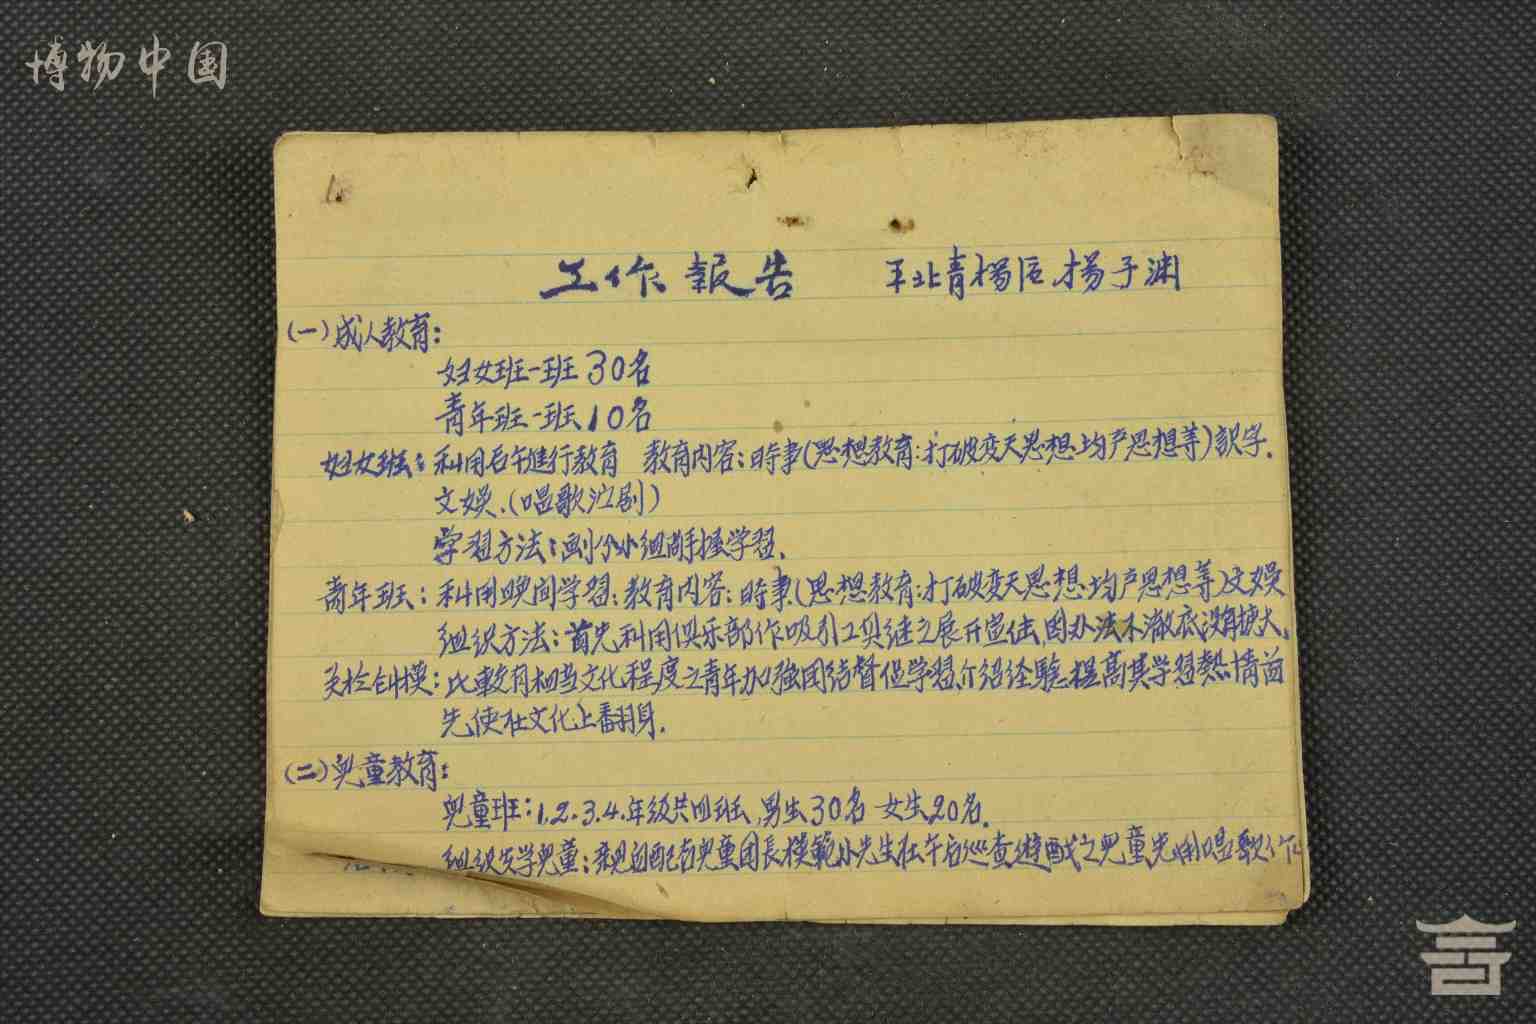 博物中国
1.
工作報告 平北青楊区 楊子渊
(一)成人教育:
妇女班一班30名
青年班一班10名
妇女班:利用后午進行教育 教育内容:時事(思想教育:打破变天思想.均产思想等)識字.
文娱.(唱歌演剧)
学習方法:劃分小组掌握学習.
青年班:利用晚间学習:教育内容:時事(思想教育:打破变天思想.均产思想等)文娱
组织方法:首先利用俱乐部作吸引工具继之展开宣传,因办法不澈底没有扩大.
比較有相当文化程度之青年加強团结督促学習介绍经驗提高其学習熱情首
先使在文化上翻身.
(二)兒童教育:
兒童班:1.2.3.4.年级共四班,男生30名 女生20名.
组织失学兒童:親自配合兒童团長模範小先生在午后巡查遊戯之兒童先以唱歌作